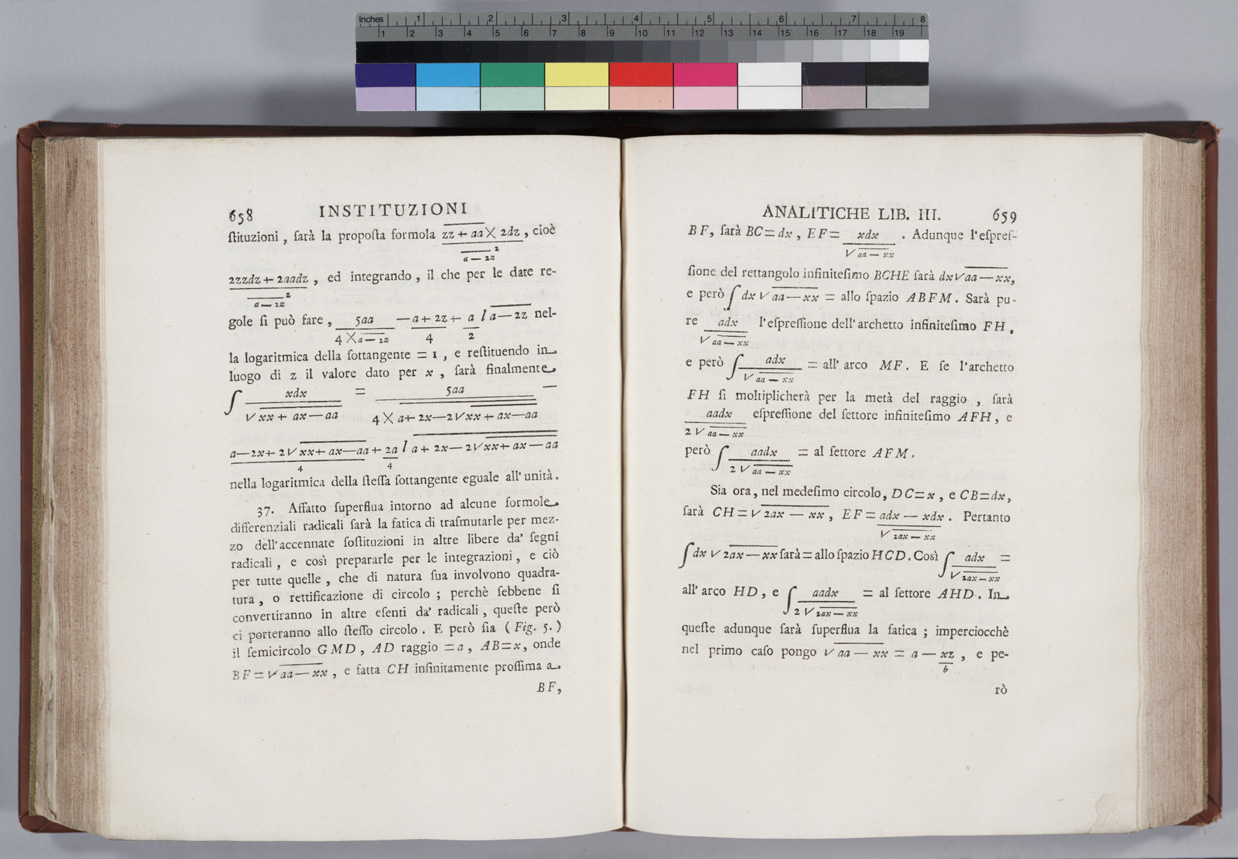 Inches 1 2 3 4 5 6 7 8
1 2 3 4 5 6 7 8 9 10 11 12 13 14 15 16 17 18 19
658 INSTITUZIONI
ſtituzioni , ſarà la propoſta formola zz + aa × 2dz , cioè
a — 2z ²
2zzdz + 2aadz , ed integrando , il che per le date re-
a — 2z ²
gole ſi può fare , 5aa — a + 2z + a l a — 2z nel-
4 × a — 2z 4 2
la logaritmica della ſottangente = 1 , e reſtituendo in
luogo di z il valore dato per x , ſarà finalmente
∫ xdx = 5aa —
√ xx + ax — aa 4 × a + 2x — 2√ xx + ax — aa
a — 2x + 2√ xx + ax — aa + 2a l a + 2x — 2√ xx + ax — aa
4 4
nella logaritmica della ſteſſa ſottangente eguale all' unità .
37. Affatto ſuperflua intorno ad alcune formole
differenziali radicali ſarà la fatica di traſmutarle per mez-
zo dell' accennate ſoſtituzioni in altre libere da' ſegni
radicali , e così prepararle per le integrazioni , e ciò
per tutte quelle , che di natura ſua involvono quadra-
tura , o rettificazione di circolo ; perchè ſebbene ſi
convertiranno in altre eſenti da' radicali , queſte però
ci porteranno allo ſteſſo circolo . E però ſia ( Fig. 5. )
il ſemicircolo GMD , AD raggio = a , AB = x , onde
BF = √ aa — xx , e fatta CH infinitamente proſſima a
BF,
ANALITICHE LIB. III. 659
BF, ſarà BC = dx , EF = xdx . Adunque l'eſpreſ-
√ aa — xx
ſione del rettangolo infiniteſimo BCHE ſarà dx √ aa — xx,
e però ∫ dx √ aa — xx = allo ſpazio ABFM. Sarà pu-
re adx l'eſpreſſione dell' archetto infiniteſimo FH ,
√ aa — xx
e però ∫ adx = all' arco MF. E ſe l'archetto
√ aa — xx
FH ſi moltiplicherà per la metà del raggio , ſarà
aadx eſpreſſione del ſettore infiniteſimo AFH , e
2 √ aa — xx
però ∫ aadx = al ſettore AFM.
2 √ aa — xx
Sia ora , nel medeſimo circolo , DC = x , e CB = dx ,
ſarà CH = √ 2ax — xx , EF = adx — xdx . Pertanto
√ 2ax — xx
∫ dx √ 2ax — xx ſarà = allo ſpazio HCD. Così ∫ adx =
√ 2ax — xx
all' arco HD , e ∫ aadx = al ſettore AHD . In
2 √ 2ax — xx
queſte adunque ſarà ſuperflua la fatica ; imperciocchè
nel primo caſo pongo √ aa — xx = a — xz , e pe-
b
rò